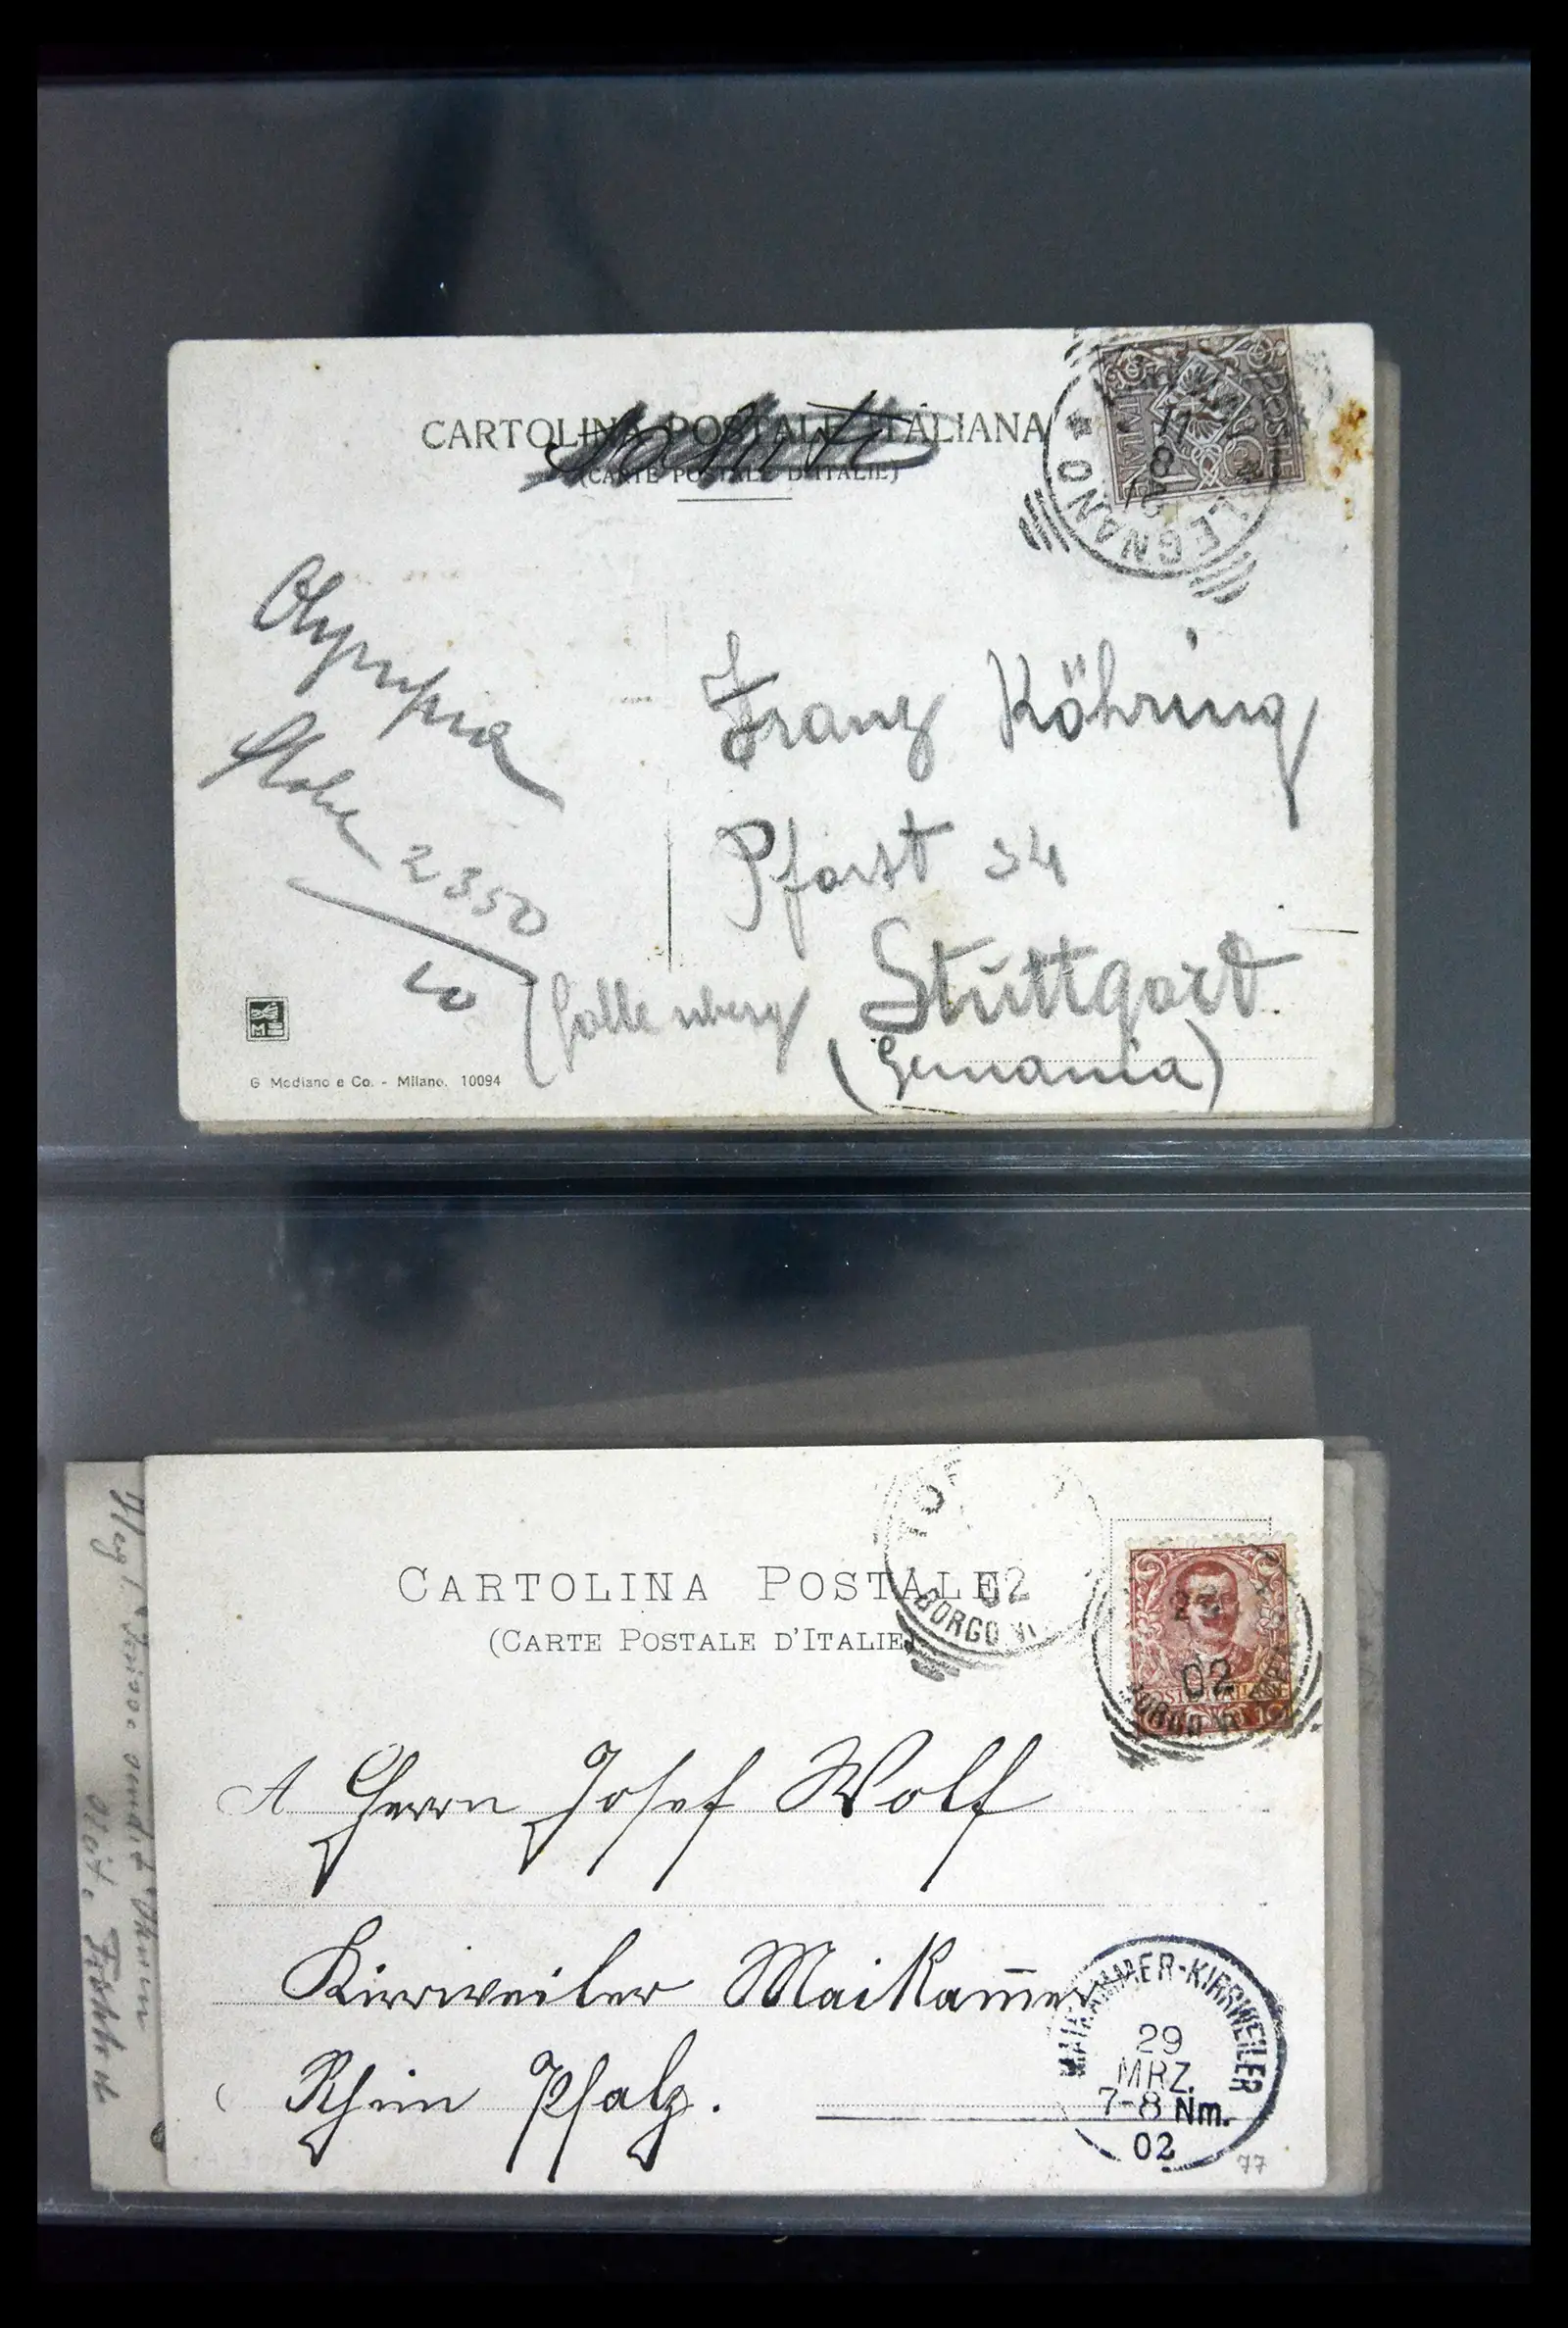 CARTOLINA POSTALE ITALIANA
(CARTE POSTALE D'ITALIE)
Saluti
POSTE
ITALIANE
LEGNANO
17
8
Olympia
2350
10
Franz Köhring
34
Stuttgart
(Germania)
G. Modiano e Co. - Milano. 10094
CARTOLINA POSTALE
(CARTE POSTALE D'ITALIE)
02
BORGO
02
A Herrn Josef Wolf
Kirrweiler Maikam̄er
Rhein Pfalz.
MAIKAMMER-KIRRWEILER
29
MRZ.
7-8 Nm.
02
77